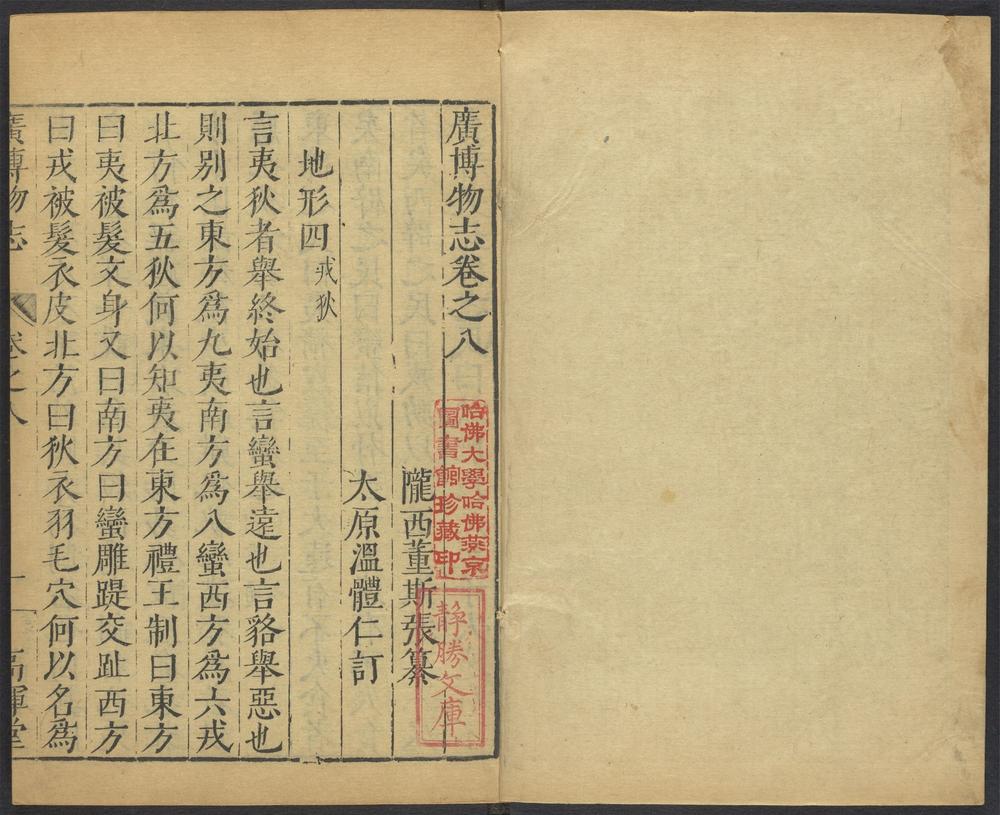 廣博物志卷之八
隴西董斯張纂
太原溫體仁訂
地形四 戎狄
言夷狄者舉終始也言蠻舉遠也言貉舉惡也
則別之東方爲九夷南方爲八蠻西方爲六戎
北方爲五狄何以知夷在東方禮王制曰東方
曰夷被髮文身又曰南方曰蠻雕踶交趾西方
曰戎被髮衣皮北方曰狄衣羽毛穴何以名爲
廣博物志 卷之八 一 高暉堂
哈佛大學哈佛燕京
圖書館珍藏印
靜勝文庫